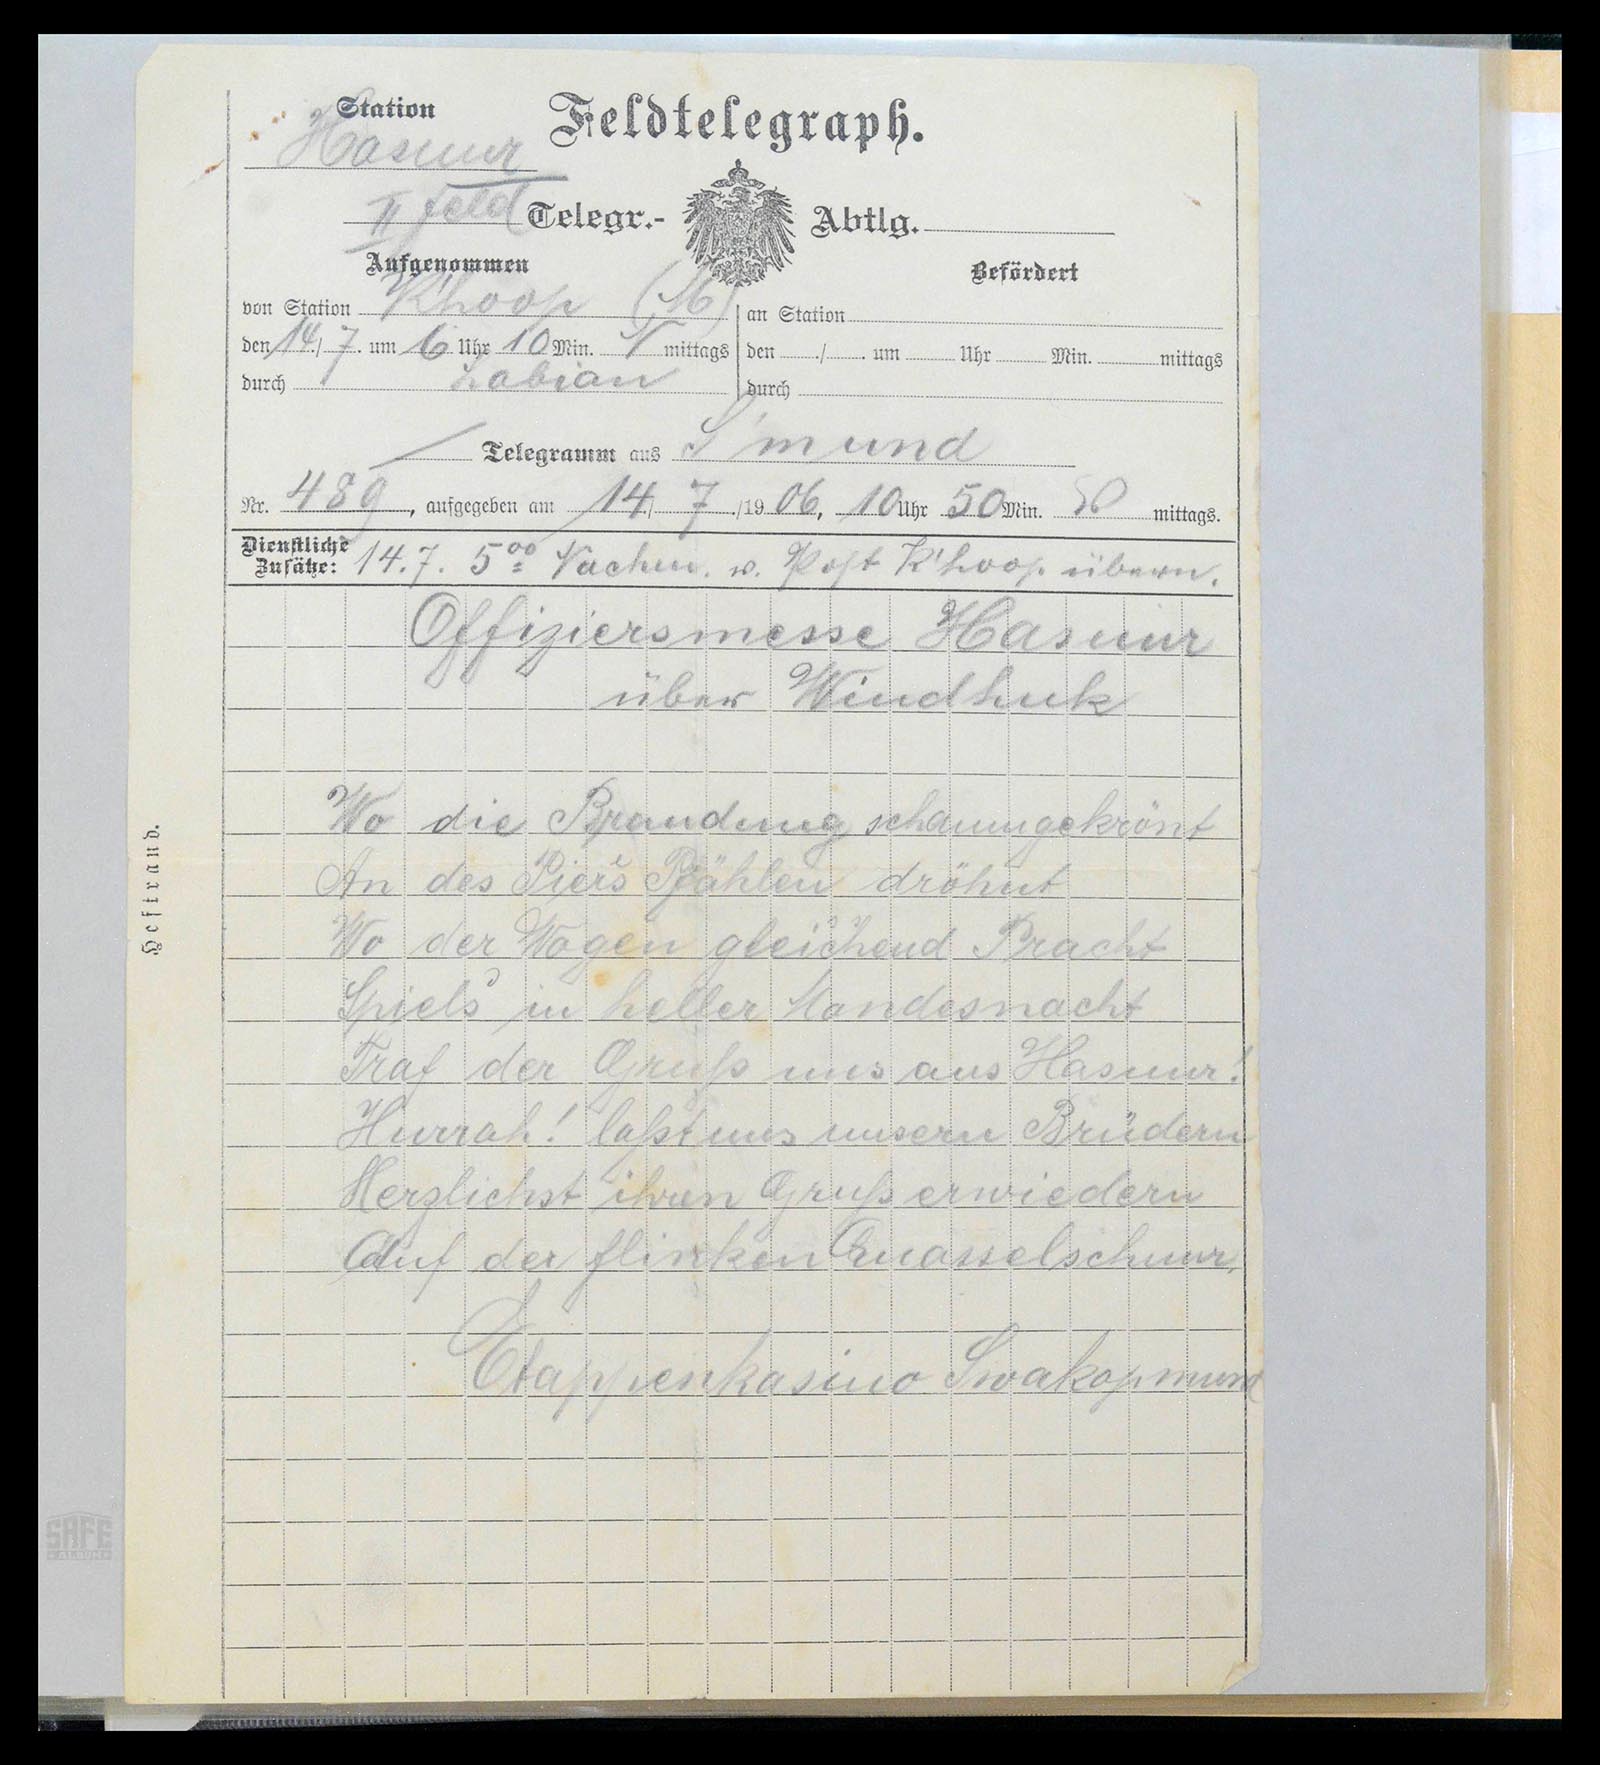 Station
Feldtelegraph.
Hasuur
II Feld Telegr.- Abtlg.
Aufgenommen
Befördert
von Station K'hoop (M)
an Station
den 14./7. um 6 Uhr 10 Min. N mittags
den / um Uhr Min. mittags
durch Labian
durch
Telegramm aus S'mund
Nr. 489, aufgegeben am 14/7/1906, 10 Uhr 50 Min. mittags.
Dienstliche Zusätze: 14.7. 5 00 Nachm. v. Post K'hoop übern.
Offiziersmesse Hasuur
über Windhuk
Wo die Brandung schaumgekrönt
An des Piers Pfählen dröhnt
Wo der Wogen gleichend Pracht
Spiels in heller Mondesnacht
Traf der Gruß uns aus Hasuur!
Hurrah! laßt uns unsern Brüdern
Herzlichst ihren Gruß erwiedern
Auf der flinken Quasselschnur.
Etappenkasino Swakopmund
Heftrand.
SAFE
ALBUM